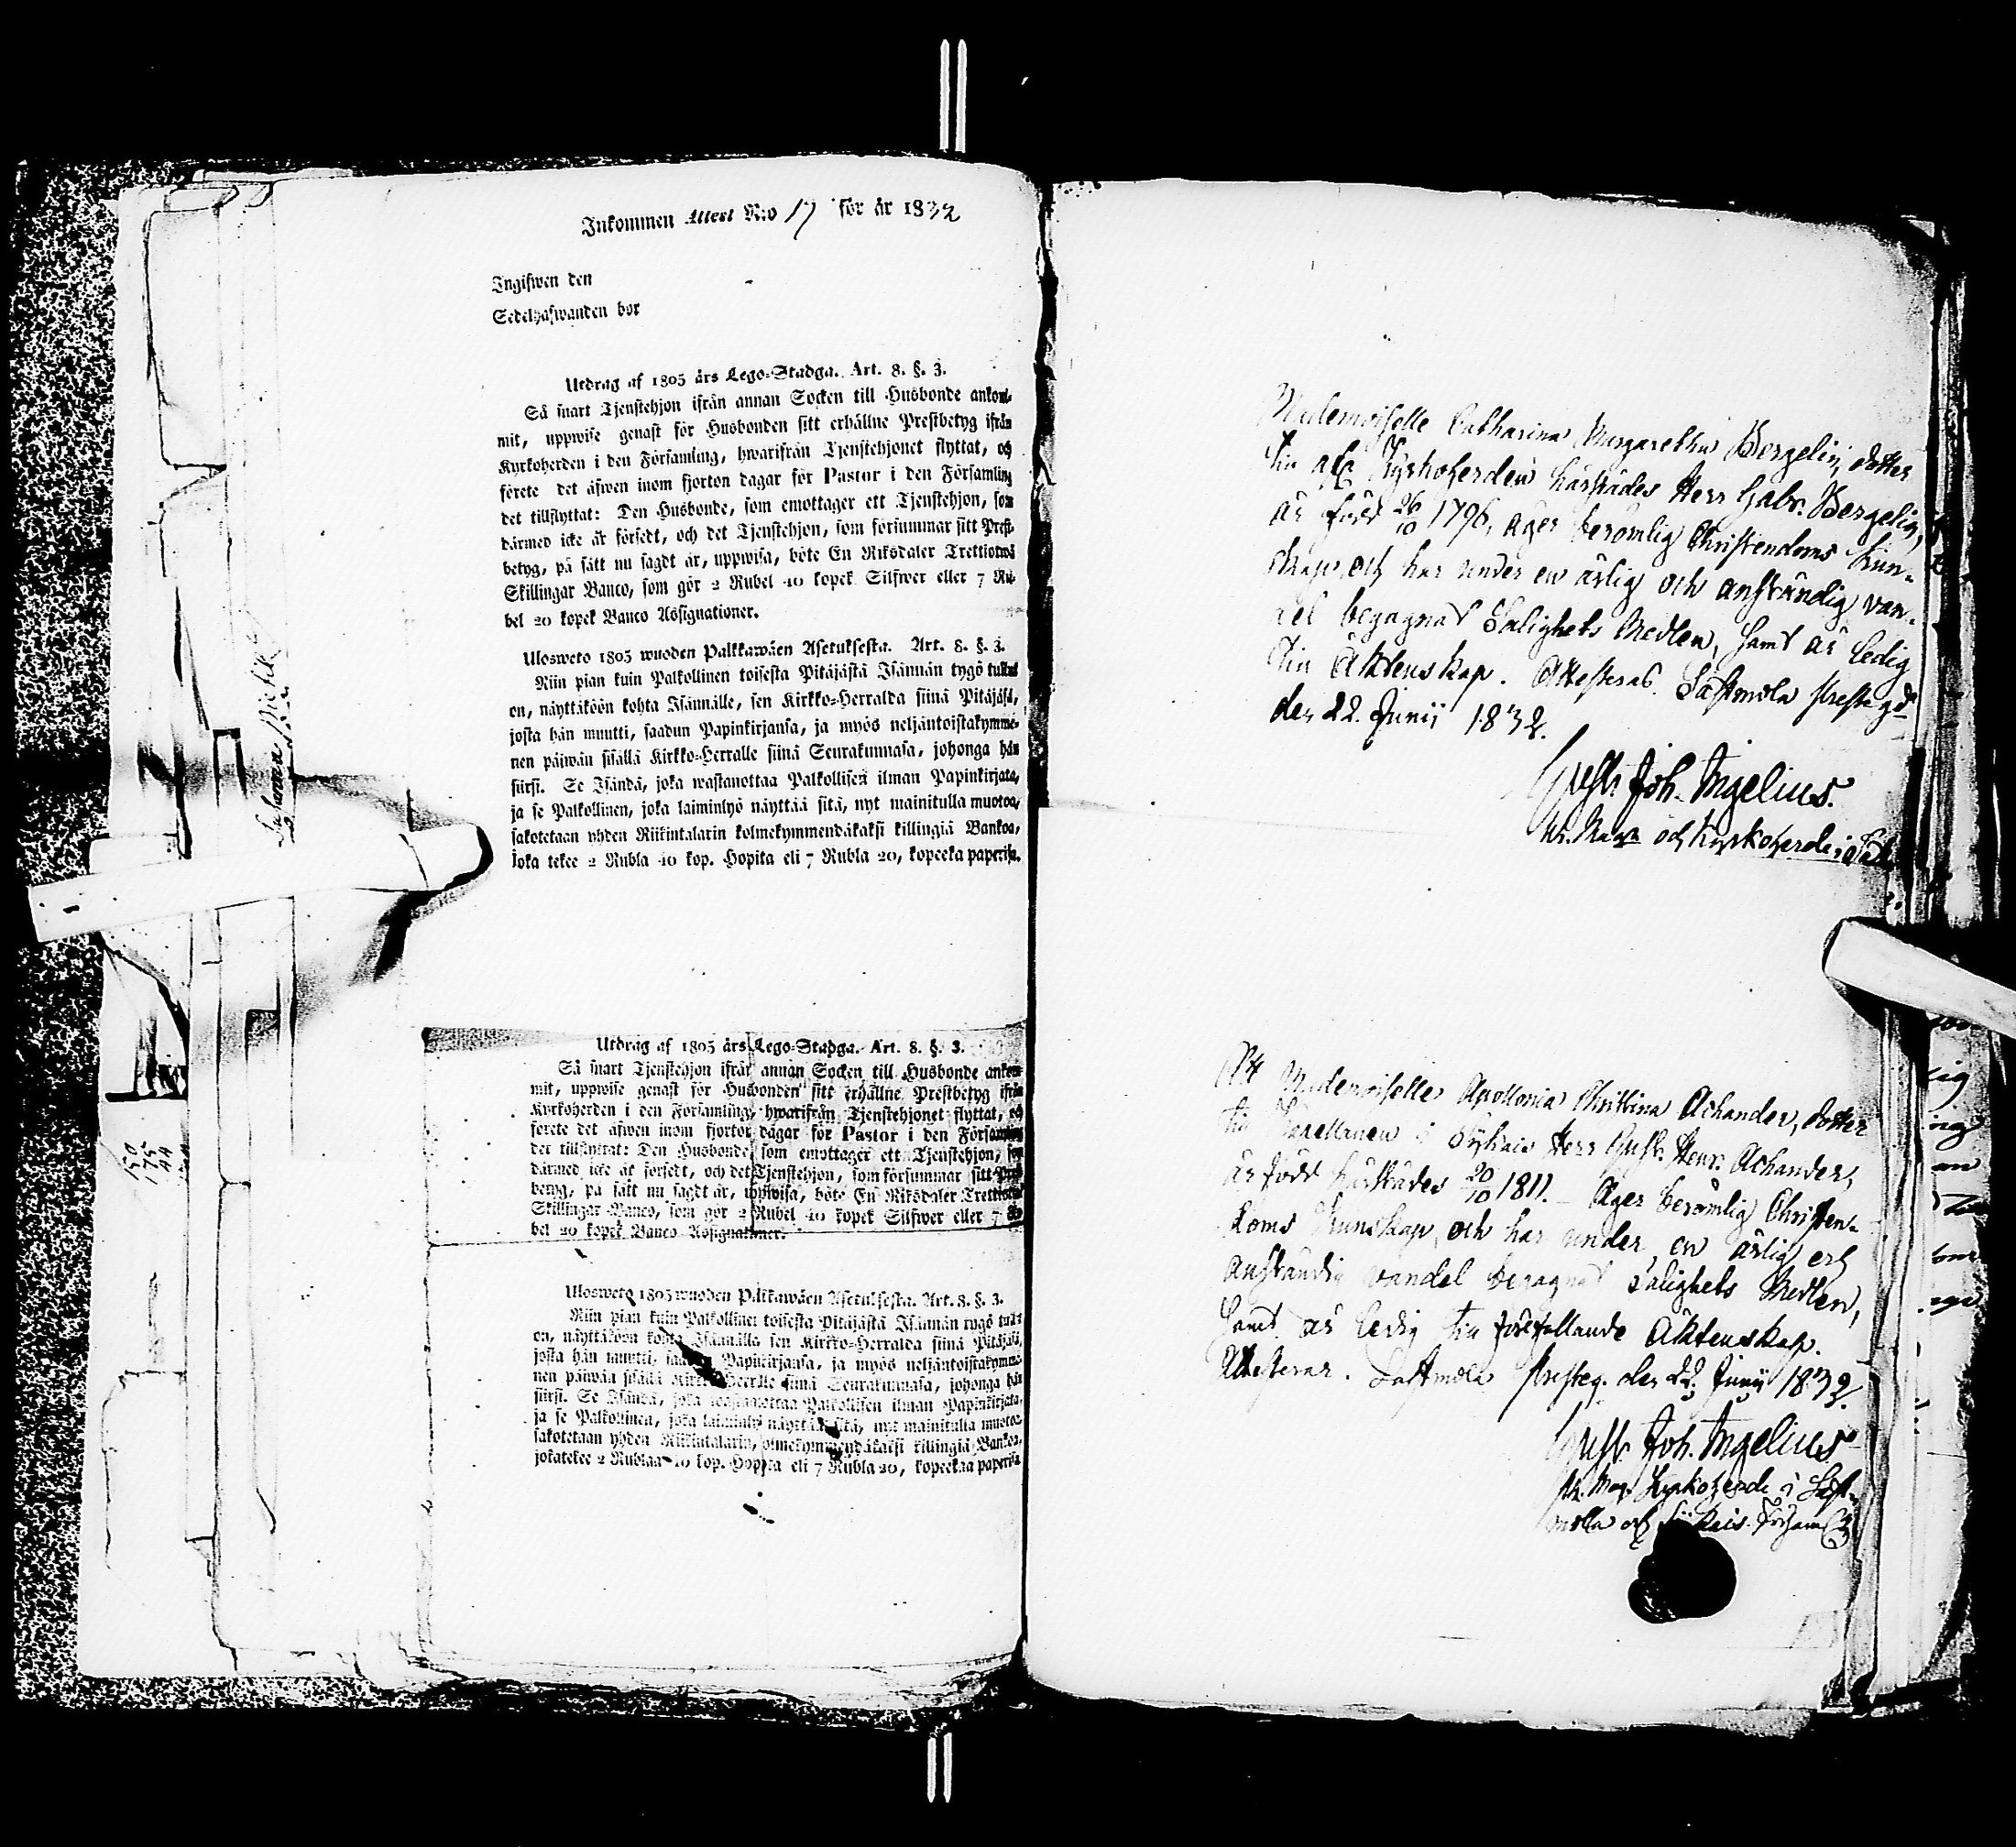 Inkommen Attest N:o 17 för år 1832
Ingifwen den
Sedelhafwanden bor
Utdrag af 1805 års Lego-Stadga. Art. 8. §. 3.
Så snart Tjenstehjon ifrån annan Socken till Husbonde ankom-
mit, uppwise genast för Husbonden sitt erhållne Prestbetyg ifrån
Kyrkoherden i den Församling, hwarifrån Tjenstehjonet flyttat, och
förete det äfwen inom fjorton dagar för Pastor i den Församling
det tillflyttat: Den Husbonde, som emottager ett Tjenstehjon, som
därmed icke är försedt, och det Tjenstehjon, som försummar sitt Prest-
betyg, på sätt nu sagdt är, uppwisa, böte En Riksdaler Trettiotwå
Skillingar Banco, som gör 2 Rubel 40 kopek Silfwer eller 7 Ru-
bel 20 kopek Banco Assignationer.
Ulosweto 1805 wuoden Palkkawäen Asetuksesta. Art. 8. §. 3.
Niin pian kuin Palkollinen toisesta Pitäjästä Isännän tygö tullut
on, näyttäköön kohta Isännälle, sen Kirkko-Herralda siinä Pitäjäsä,
josta hän muutti, saadun Papinkirjansa, ja myös neljäntoistakymme-
nen päiwän sisällä Kirkko-Herralle siinä Seurakunnasa, johonga hän
siirsi. Se Isändä, joka wastanottaa Palkollisen ilman Papinkirjata,
ja se Palkollinen, joka laiminlyö näyttää sitä, nyt mainitulla muotoa,
sakotetaan yhden Riikintalarin kolmekymmendäkaksi killingiä Bankoa,
joka tekee 2 Rubla 40 kop. Hopita eli 7 Rubla 20, kopeeka paperisa.
Utdrag af 1805 års Lego-Stadga. Art. 8. §. 3.
Så snart Tjenstehjon ifrån annan Socken till Husbonde ankom-
mit, uppwise genast för Husbonden sitt erhållne Prestbetyg ifrån
Kyrkoherden i den Församling, hwarifrån Tjenstehjonet flyttat, och
förete det äfwen inom fjorton dagar för Pastor i den Församling
det tillflyttat: Den Husbonde som emottager ett Tjenstehjon, som
därmed icke är försedt, och det Tjenstehjon, som försummar sitt Prest-
betyg, på sätt nu sagdt är, uppwisa, böte En Riksdaler Trettiotwå
Skillingar Banco, som gör 2 Rubel 40 kopek Silfwer eller 7 Ru-
bel 20 kopek Banco Assignationer.
Ulosweto 1805 wuoden Palkkawäen Asetuksesta. Art. 8. §. 3.
Niin pian kuin Palkollinen toisesta Pitäjästä Isännän tygö tullut
on, näyttäköön kohta Isännällä sen Kirkko-Herralda siinä Pitäjäsä,
josta hän muutti, saadun Papinkirjansa, ja myös neljäntoistakymme-
nen päiwän sisällä Kirkko-Herralle siinä Seurakunnasa, johonga hän
siirsi. Se Isändä, joka wastanottaa Palkollisen ilman Papinkirjata,
ja se Palkollinen, joka laiminlyö näyttää sitä, nyt mainitulla muotoa
sakotetaan yhden Riikintalarin, kolmekymmendäkaksi killingiä Bankoa,
jokatekee 2 Rublaa 40 kop. Hopita eli 7 Rubla 20, kopeekaa paperisa
150
175
44
Mademoiselle Catharina Margaretha Bergelin, dotter
till afl. Kyrkoherden härstädes Herr Gabr. Bergelin,
är född 26/10 1796, äger berömlig Christendoms kun-
skap, och har under en ärlig och anständig van-
del begagnat Salighets Medlen, samt är ledig
till Äktenskap. Attesteras. Sastmola Prestegd
den 22. Junii 1832.
Gust. Joh. Ingelius.
och Kyrkoherde i
Att Mademoiselle Apollonia Christina Achander, dotter
till Capellanen i Sijkais Herr Gust. Henr. Achander,
är född härstädes 20/10 1811. Äger berömlig Christen-
doms kunskap, och har under en ärlig och
anständig vandel begagnat Salighets Medlen,
samt är ledig till förefallande Äktenskap.
Attesteras. Sastmola Presteg. den 22. Junii 1832.
Gust. Joh. Ingelius
Kyrkoherde i Sast-
mola och Siikais